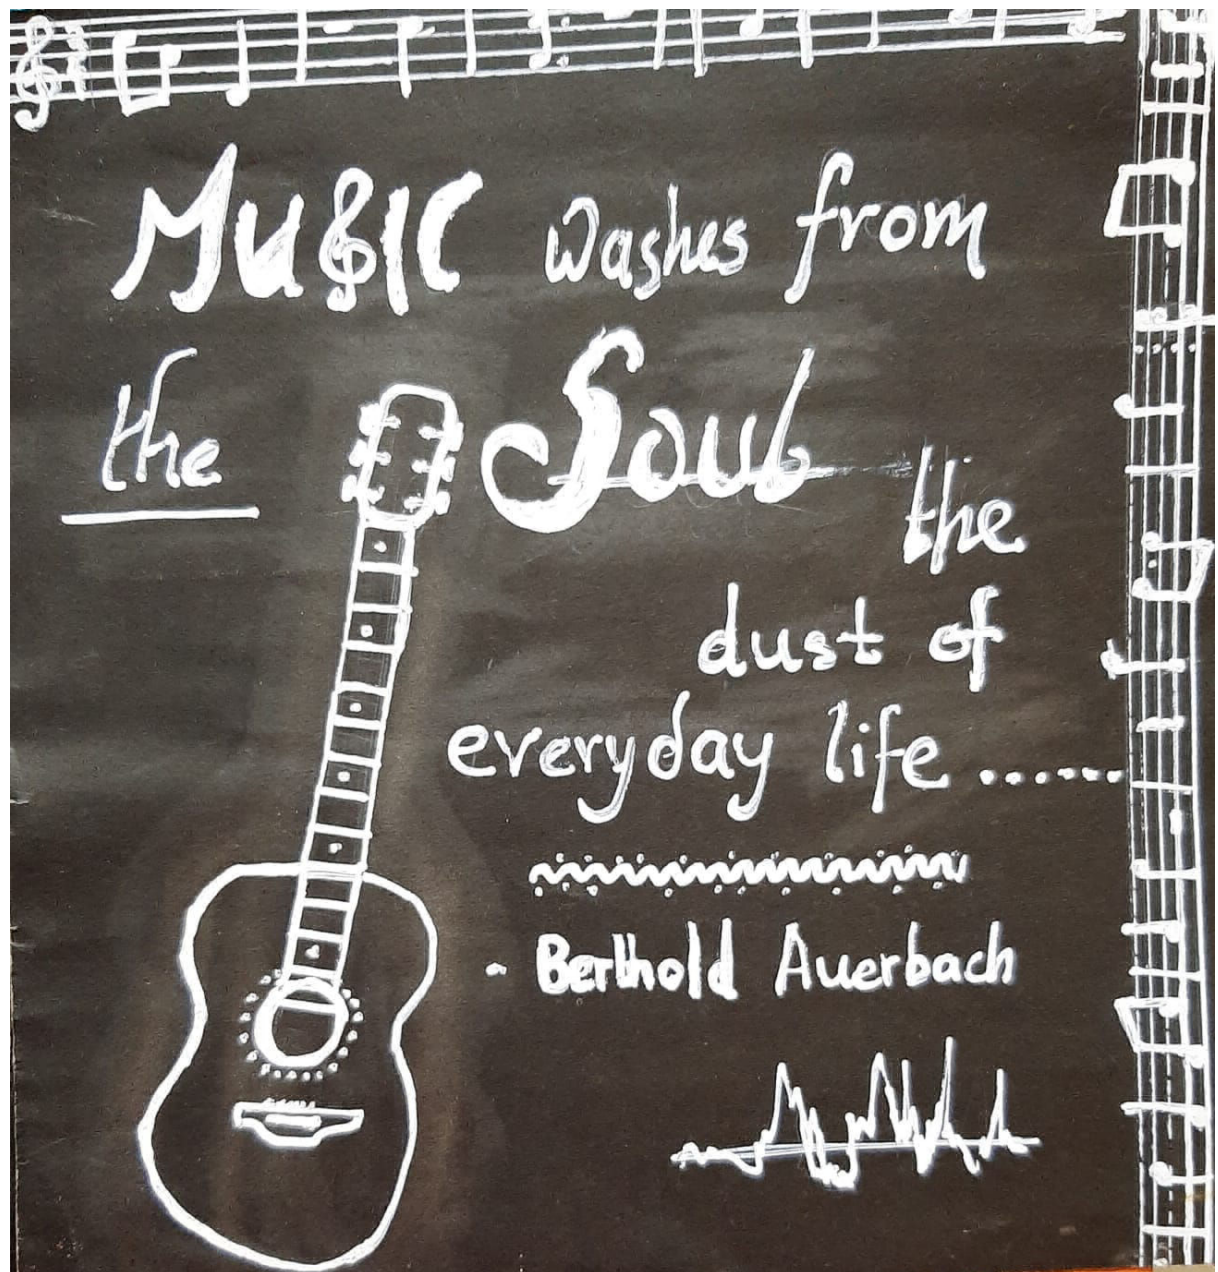 MUSIC washes from
the Soul
the
dust of
everyday life ......
- Berthold Auerbach